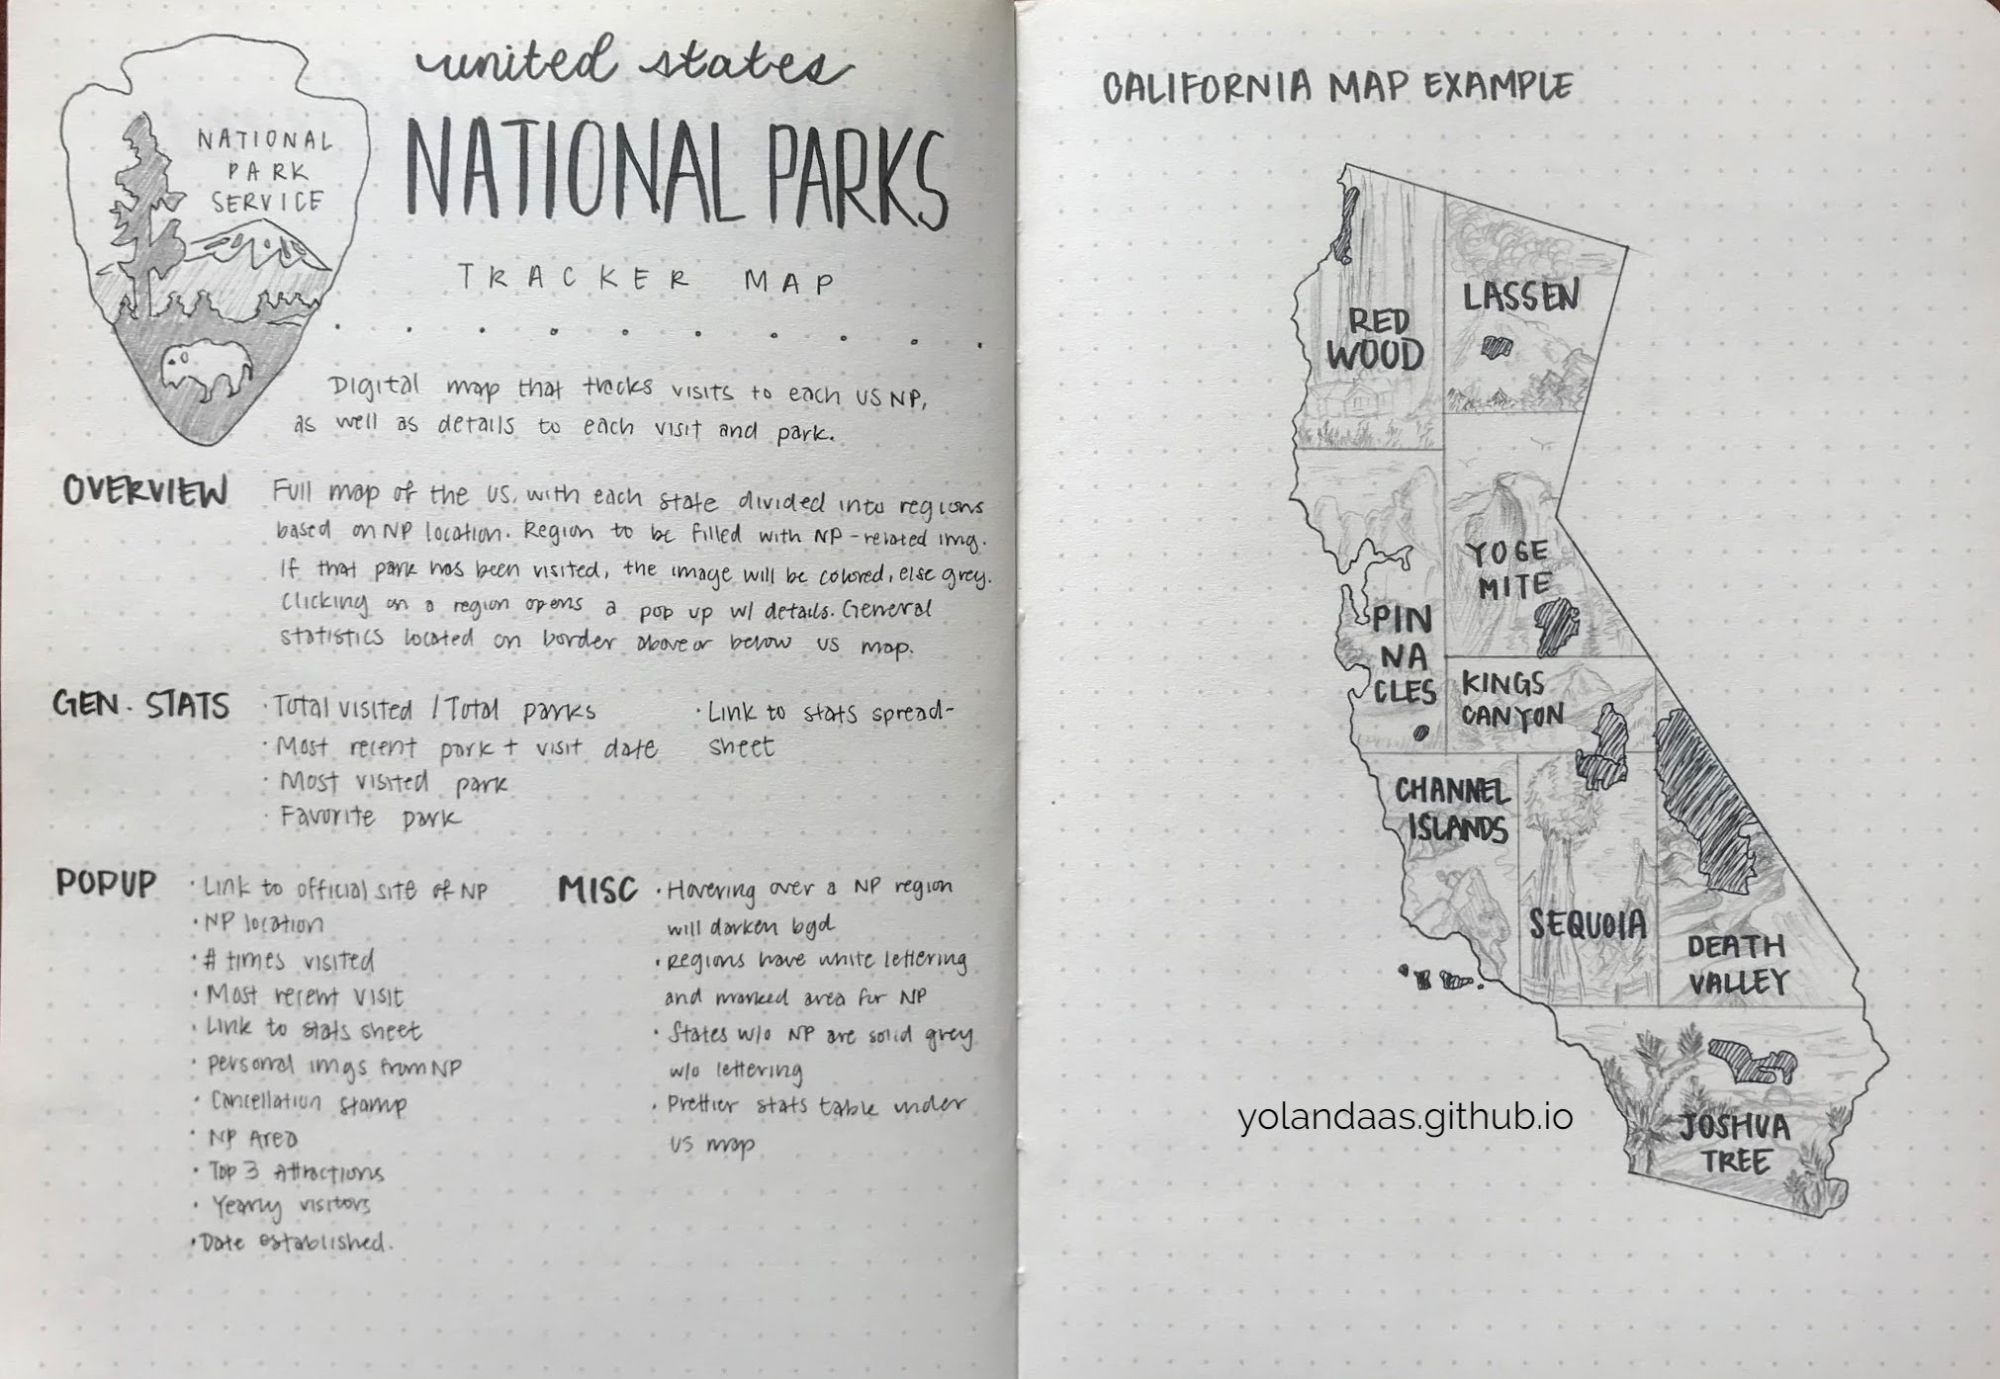 united states
NATIONAL PARKS
TRACKER MAP
NATIONAL
PARK
SERVICE
Digital map that tracks visits to each US NP,
as well as details to each visit and park.
OVERVIEW
Full map of the US, with each state divided into regions
based on NP location. Region to be filled with NP-related img.
If that park has been visited, the image will be colored, else grey.
Clicking on a region opens a pop up w/ details. General
statistics located on border above or below US map.
GEN. STATS
· Total visited / Total parks
· Most recent park + visit date
· Most visited park
· Favorite park
· Link to stats spread-
sheet
POPUP
· Link to official site of NP
· NP location
· # times visited
· Most recent visit
· Link to stats sheet
· Personal imgs from NP
· Cancellation stamp
· NP Area
· Top 3 Attractions
· Yearly visitors
· Date established.
MISC
· Hovering over a NP region
will darken bgd
· Regions have white lettering
and marked area for NP
· States w/o NP are solid grey
w/o lettering
· Prettier stats table under
US map
CALIFORNIA MAP EXAMPLE
RED
WOOD
LASSEN
YOSE
MITE
PIN
NA
CLES
KINGS
CANYON
CHANNEL
ISLANDS
SEQUOIA
DEATH
VALLEY
JOSHUA
TREE
yolandaas.github.io